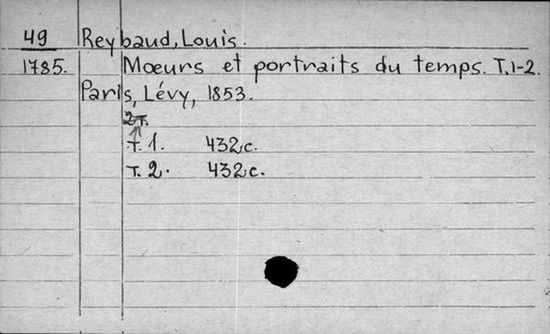 49 Reybaud, Louis.
1785. Mœurs et portraits du temps. T.1-2.
Paris, Lévy, 1853.
2т.
т. 1. 432 c.
т. 2. 432 c.